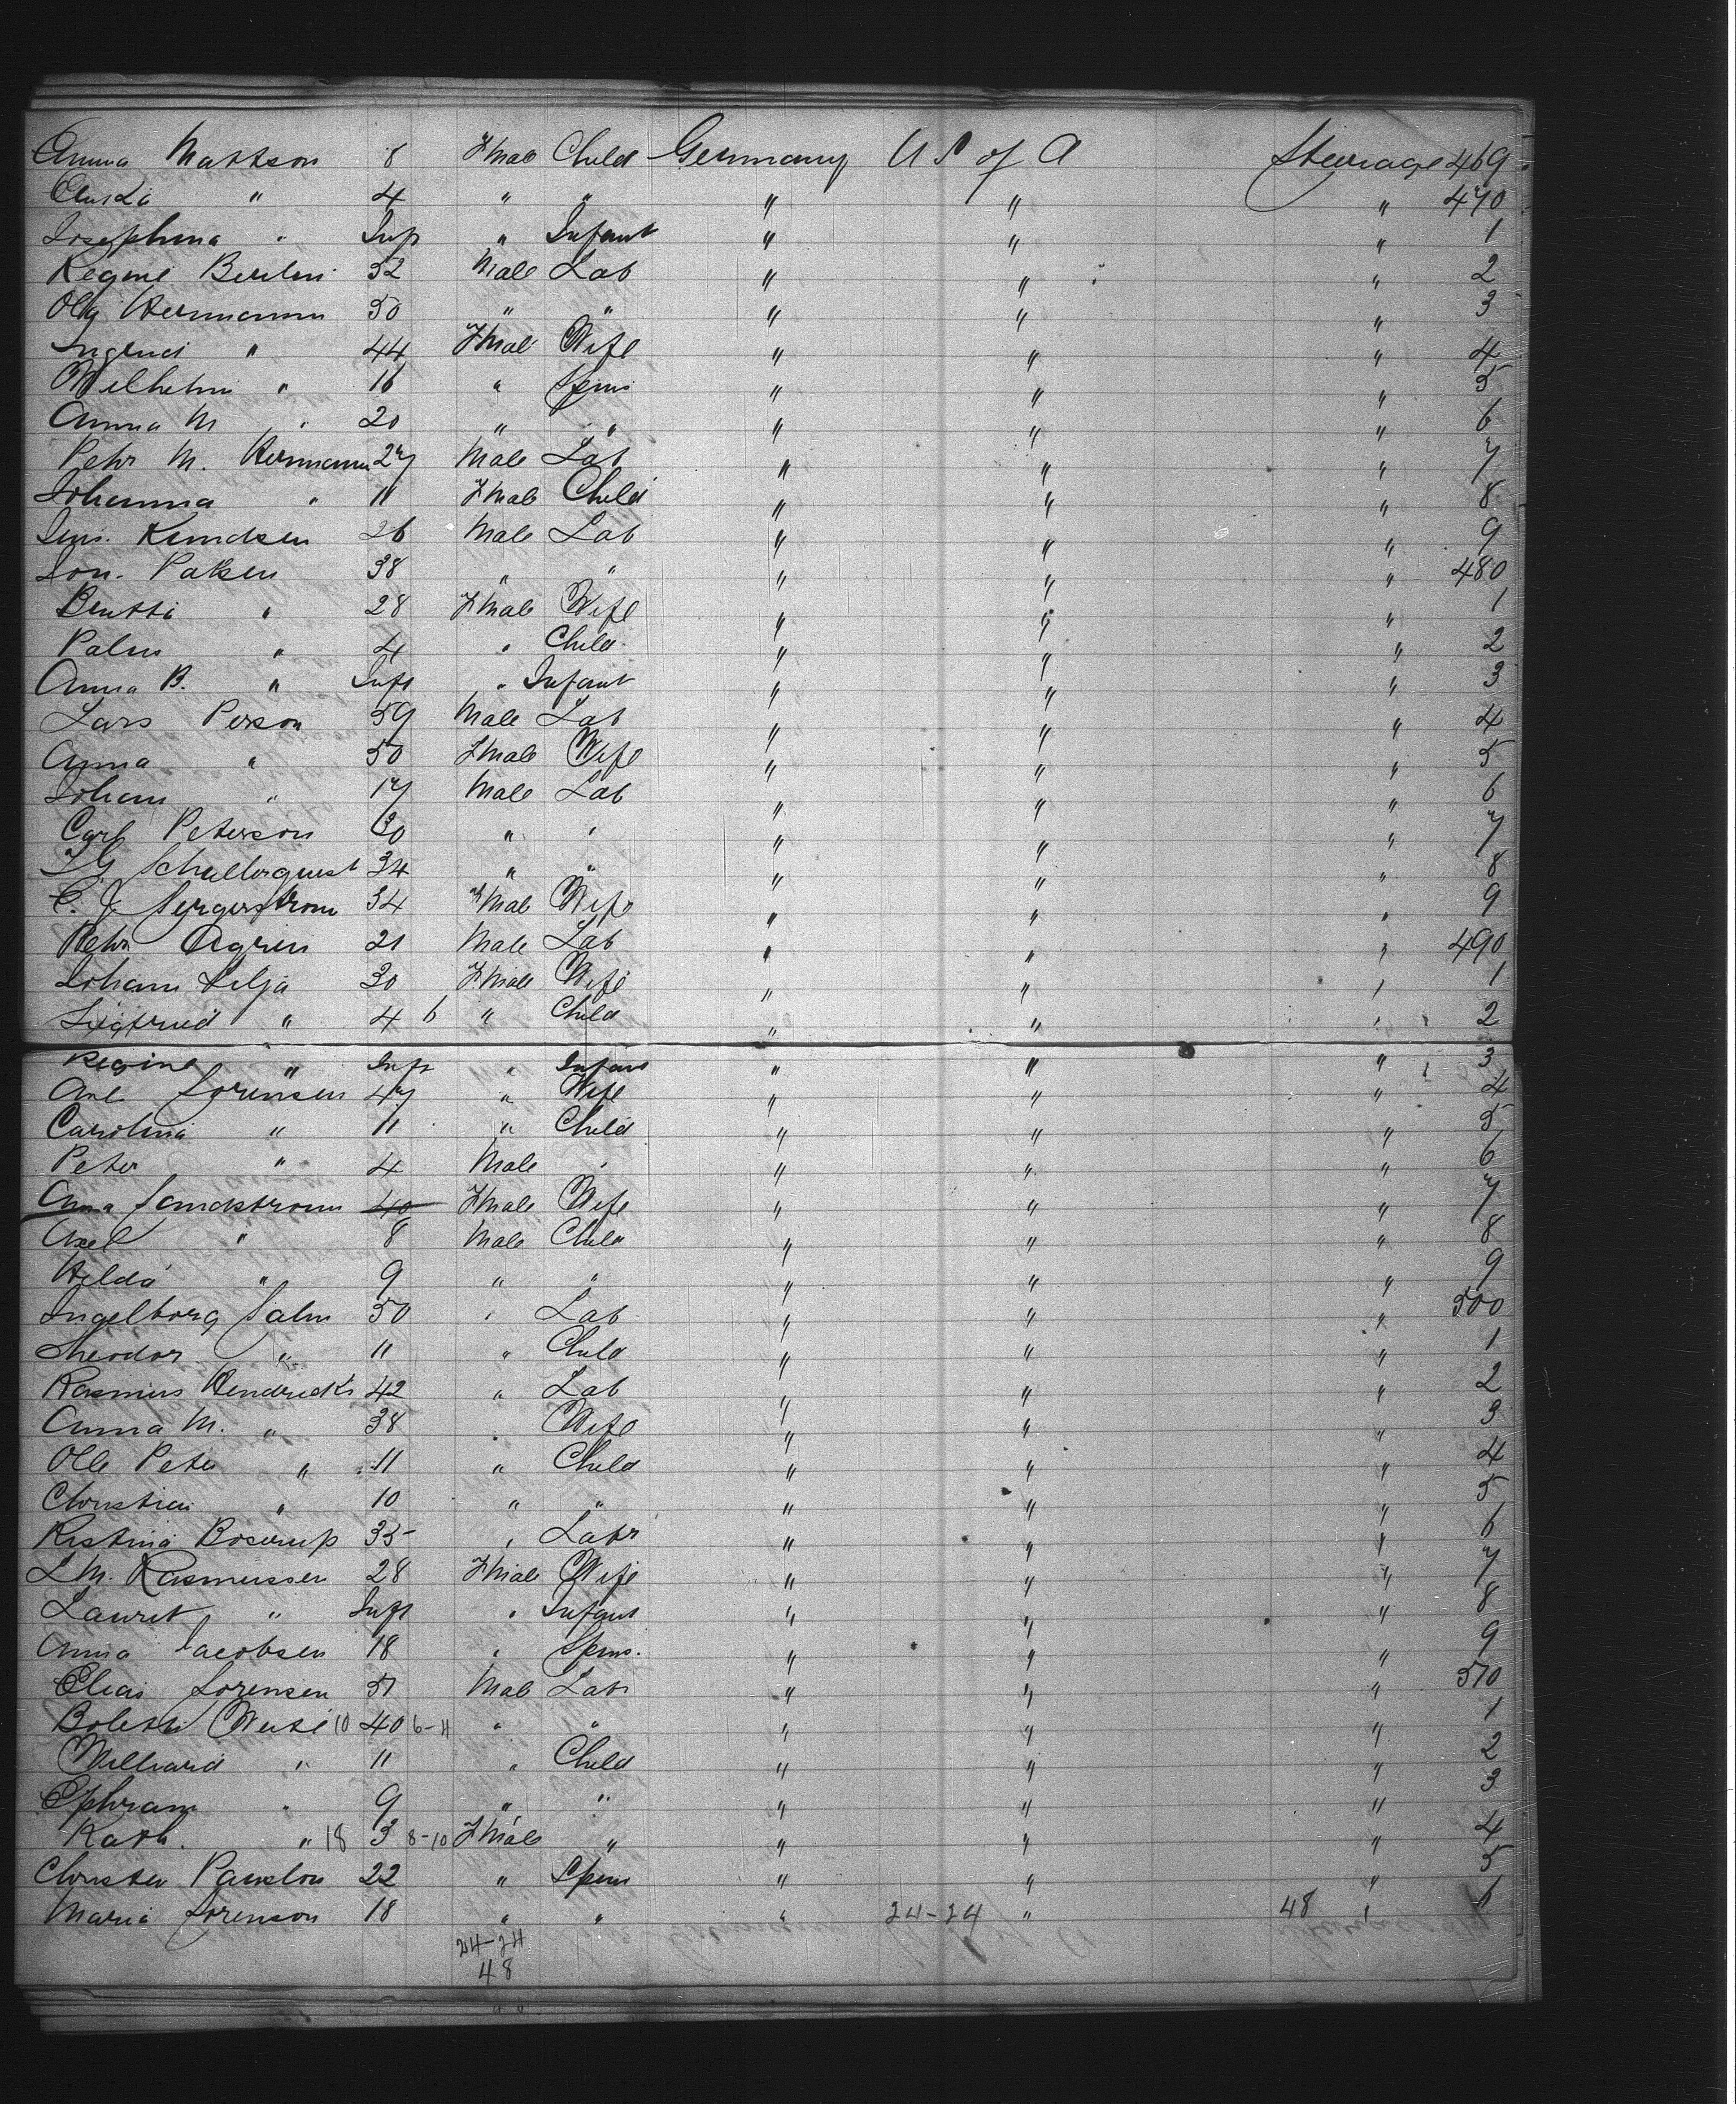 Anna Mattson 8 Fmale Child Germany U S of A Steerage 469
" 4 " " " " " 470
Josephina " Inft " Infant " " " 1
Regine Berlin 32 Male Lab " " " 2
Olly Hermann 50 " " " " " 3
Ingrid " 44 Fmale Wife " " " 4
Wilhelm " 16 " Spins " " " 5
Anna M " 20 " " " " " 6
Pehr M. Hermann 27 Male Lab " " " 7
Johanna " 11 Fmale Child " " " 8
Jens. Knudsen 26 Male Lab " " " 9
Jon. Palsen 38 " " " " " 480
" 28 Fmale Wife " " " 1
" 4 " Child " " " 2
Anna B. " Inft " Infant " " " 3
Lars Person 59 Male Lab " " " 4
Anna " 50 Fmale Wife " " " 5
Johan " 17 Male Lab " " " 6
Carl Peterson 30 " " " " " 7
34 " " " " " 8
C. J. Sergerstrom 34 Fmale Wife " " " 9
Pehr Agren 21 Male Lab " " " 490
Johann Lilja 30 Fmale Wife " " " 1
Sigfried " 4 6 " Child " " " 2
Regine " Inft " Infant " " " 3
Sorensen 47 " Wife " " " 4
Carolina " 11 " Child " " " 5
Peter " 4 Male " " " " 6
Anna Sandstrom 40 Fmale Wife " " " 7
Axel " 8 Male Child " " " 8
Hilda " 9 " " " " " 9
Ingelborg Salm 50 " Lab " " " 500
Theodor " 11 " Child " " " 1
Rasmus Hendricks 42 " Lab " " " 2
Anna M. " 38 " Wife " " " 3
Olle Peter " 11 " Child " " " 4
Christien " 10 " " " " " 5
Kistina Boserup 35 " Labr " " " 6
L M. Rasmussen 28 Fmale Wife " " " 7
Lauret " Inft " Infant " " " 8
Anna Jacobsen 18 " Spins. " " " 9
Elias Sorensen 51 Male Labr " " " 510
10 40 6-11 " " " " " 1
" 11 " Child " " " 2
Ephram " 9 " " " " " 3
Kath. " 18 3 8-10 Fmale " " " " 4
Christen 22 " Spins " " " 5
Maria Sorenson 18 " " " 24-24 " 48 " 6
24-24
48